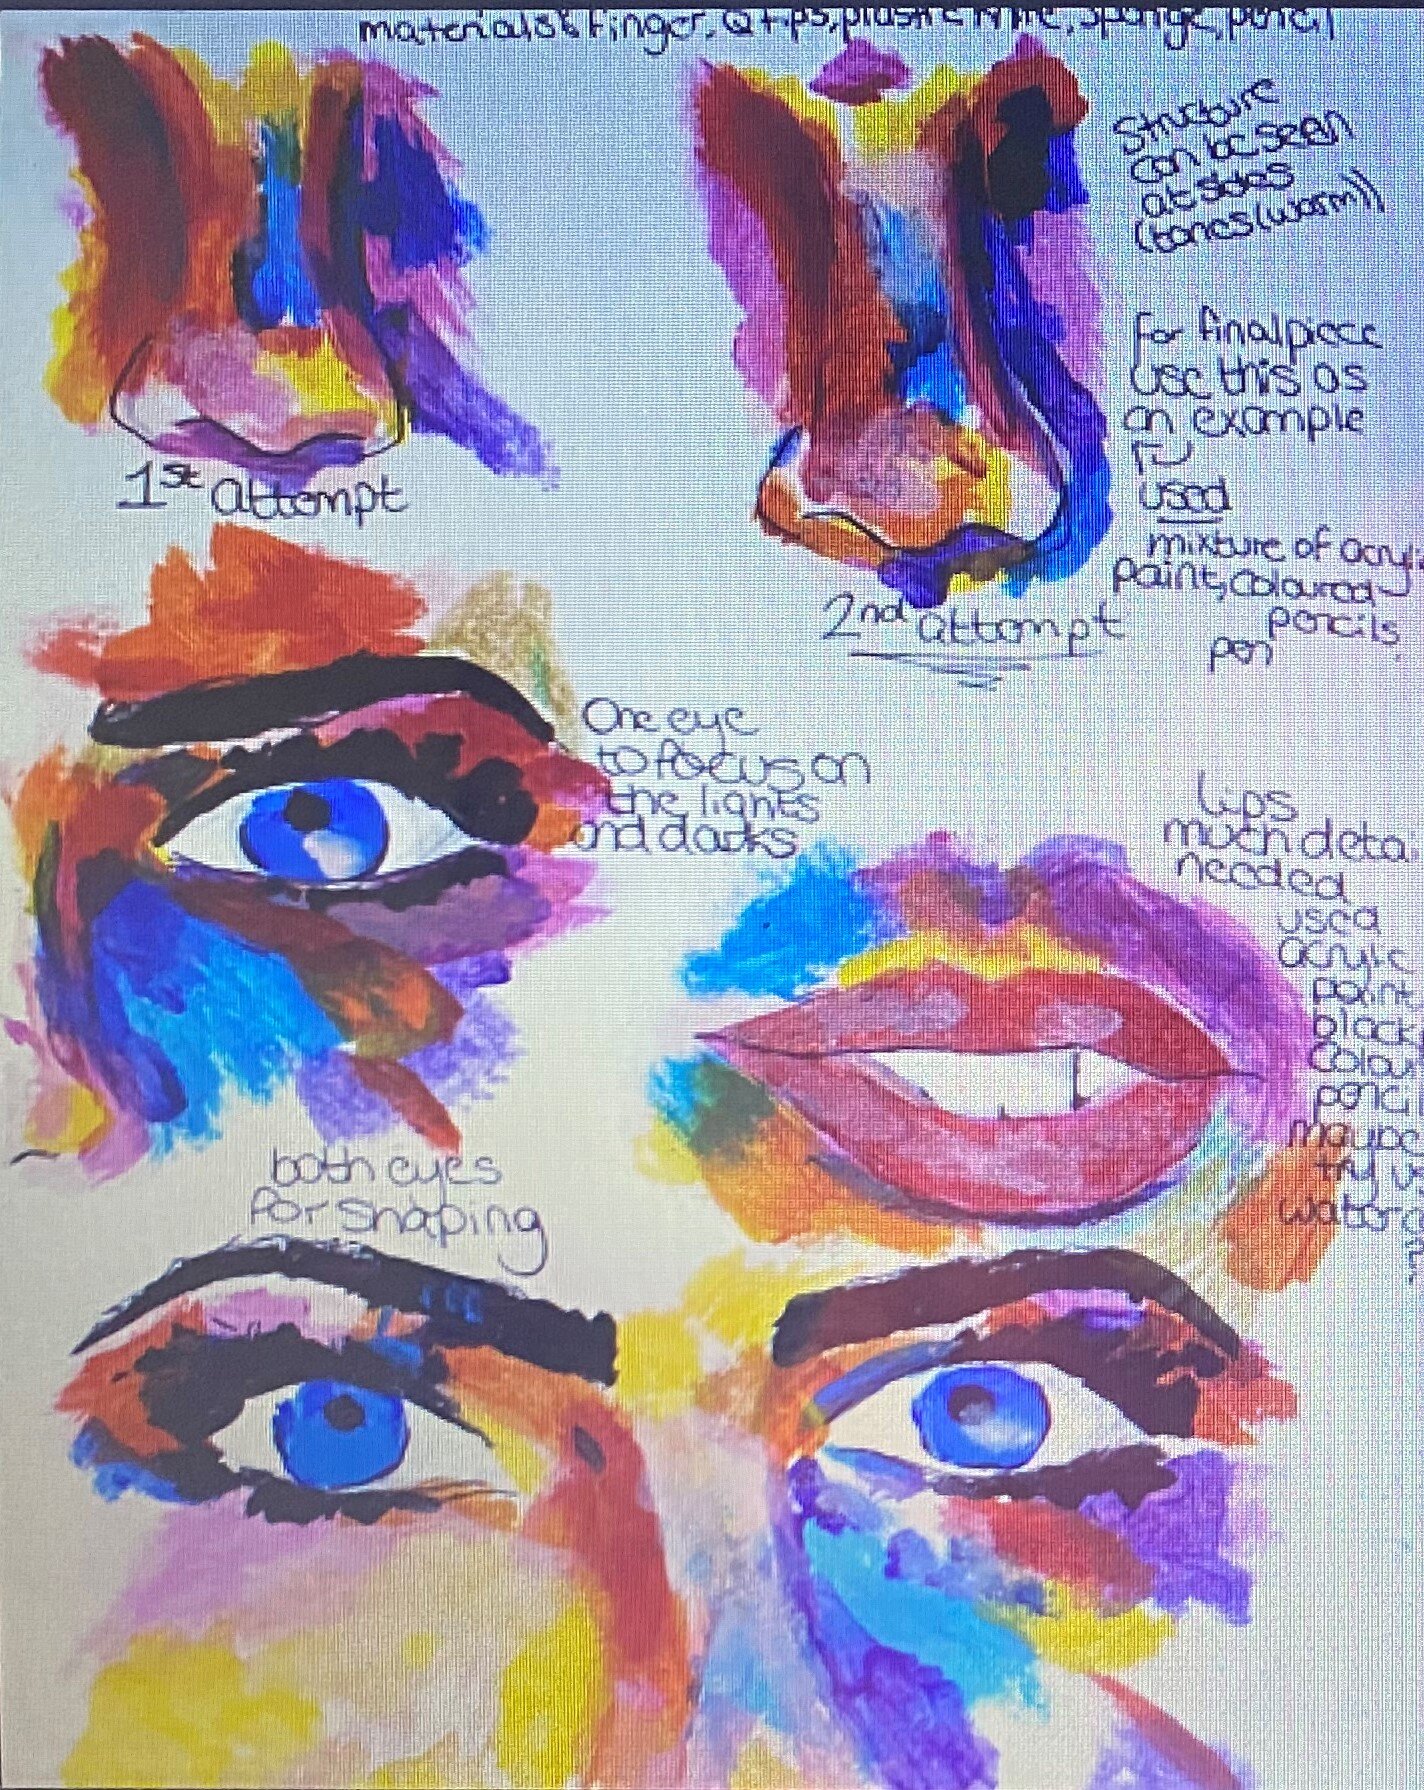 materials: Finger, Q tips, plastic knife, sponge, pencil
Structure
can be seen
at sides
(tones (warm))
For final piece
use this as
an example
used
mixture of acrylic
paint, coloured
pencils
pen
1st attempt
2nd attempt
One eye
to focus on
the lights
and darks
lips
much deta
needed
used
acrylic
paint
black
colou
penci
maybe
try
water
both eyes
for shaping